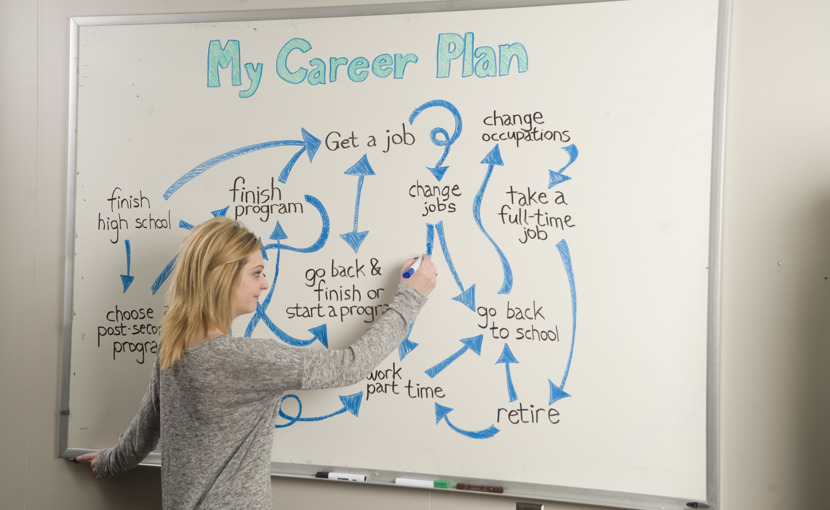 My Career Plan
Get a job
change
occupations
finish
high school
finish
program
change
jobs
take a
full-time
job
go back &
finish or
start a
choose
go back
to school
work
part time
retire